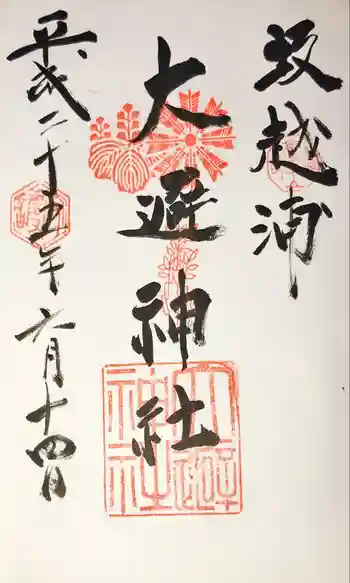 坂越浦
大避神社
平成二十五年六月十四日